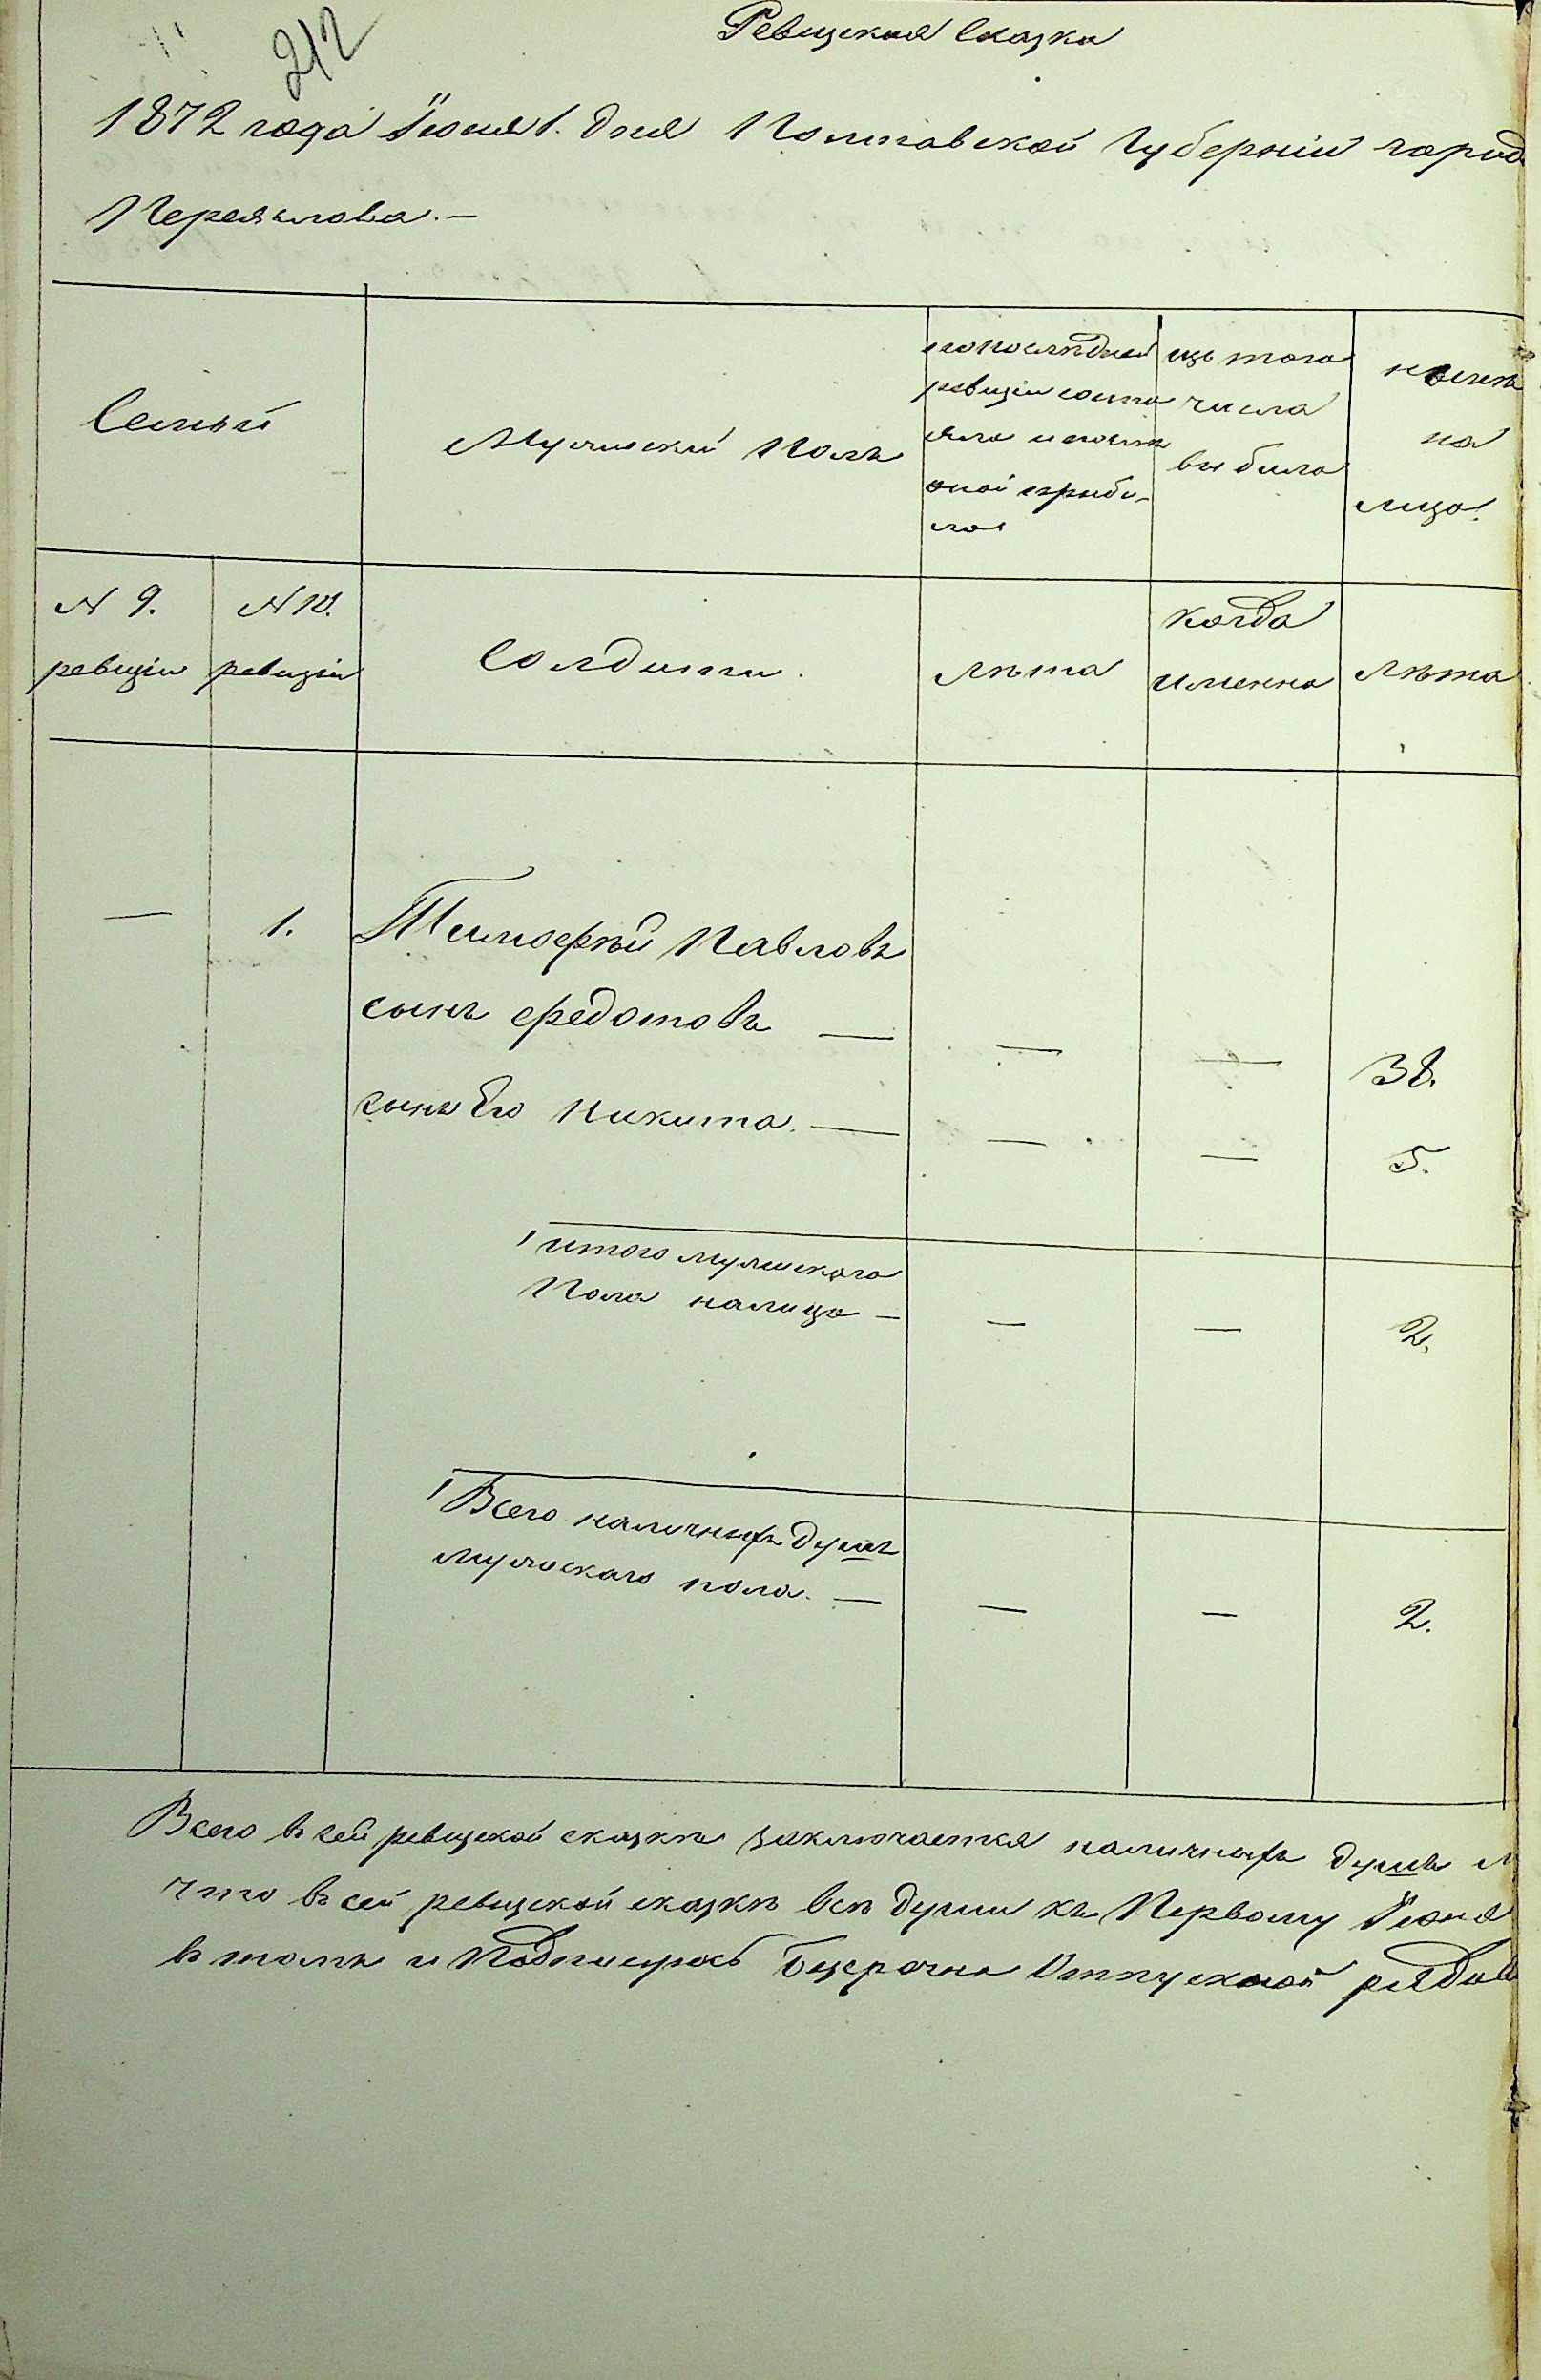 212
Ревизская Сказка
1872 года Іюня 1. дня Полтавской Губерніи город
Переяслова.—
Семьи
Мужескій Полъ
по последней
ревизіи состо
яло и после
оной прибы-
ло
изъ того
числа
выбыло
ныне
на
лицо.
N 9.
ревизіи
N 10.
ревизіи
Солдаты.
лѣта
когда
именно
лѣта
— 1. Тимофѣй Павловъ
сынъ Федотовъ — — — 38.
сынъ Его Никита. — — — 5.
итого мужеского
Пола налицо — — — 2.
Всего наличныхъ душъ
мужескаго пола. — — — 2.
Всего въ сей ревизской сказкѣ заключается наличныхъ душъ м
что въ сей ревизской сказкѣ всѣ души къ Первому Іюня
въ томъ и Подписуюсь Безсрочно Отпускной рядов